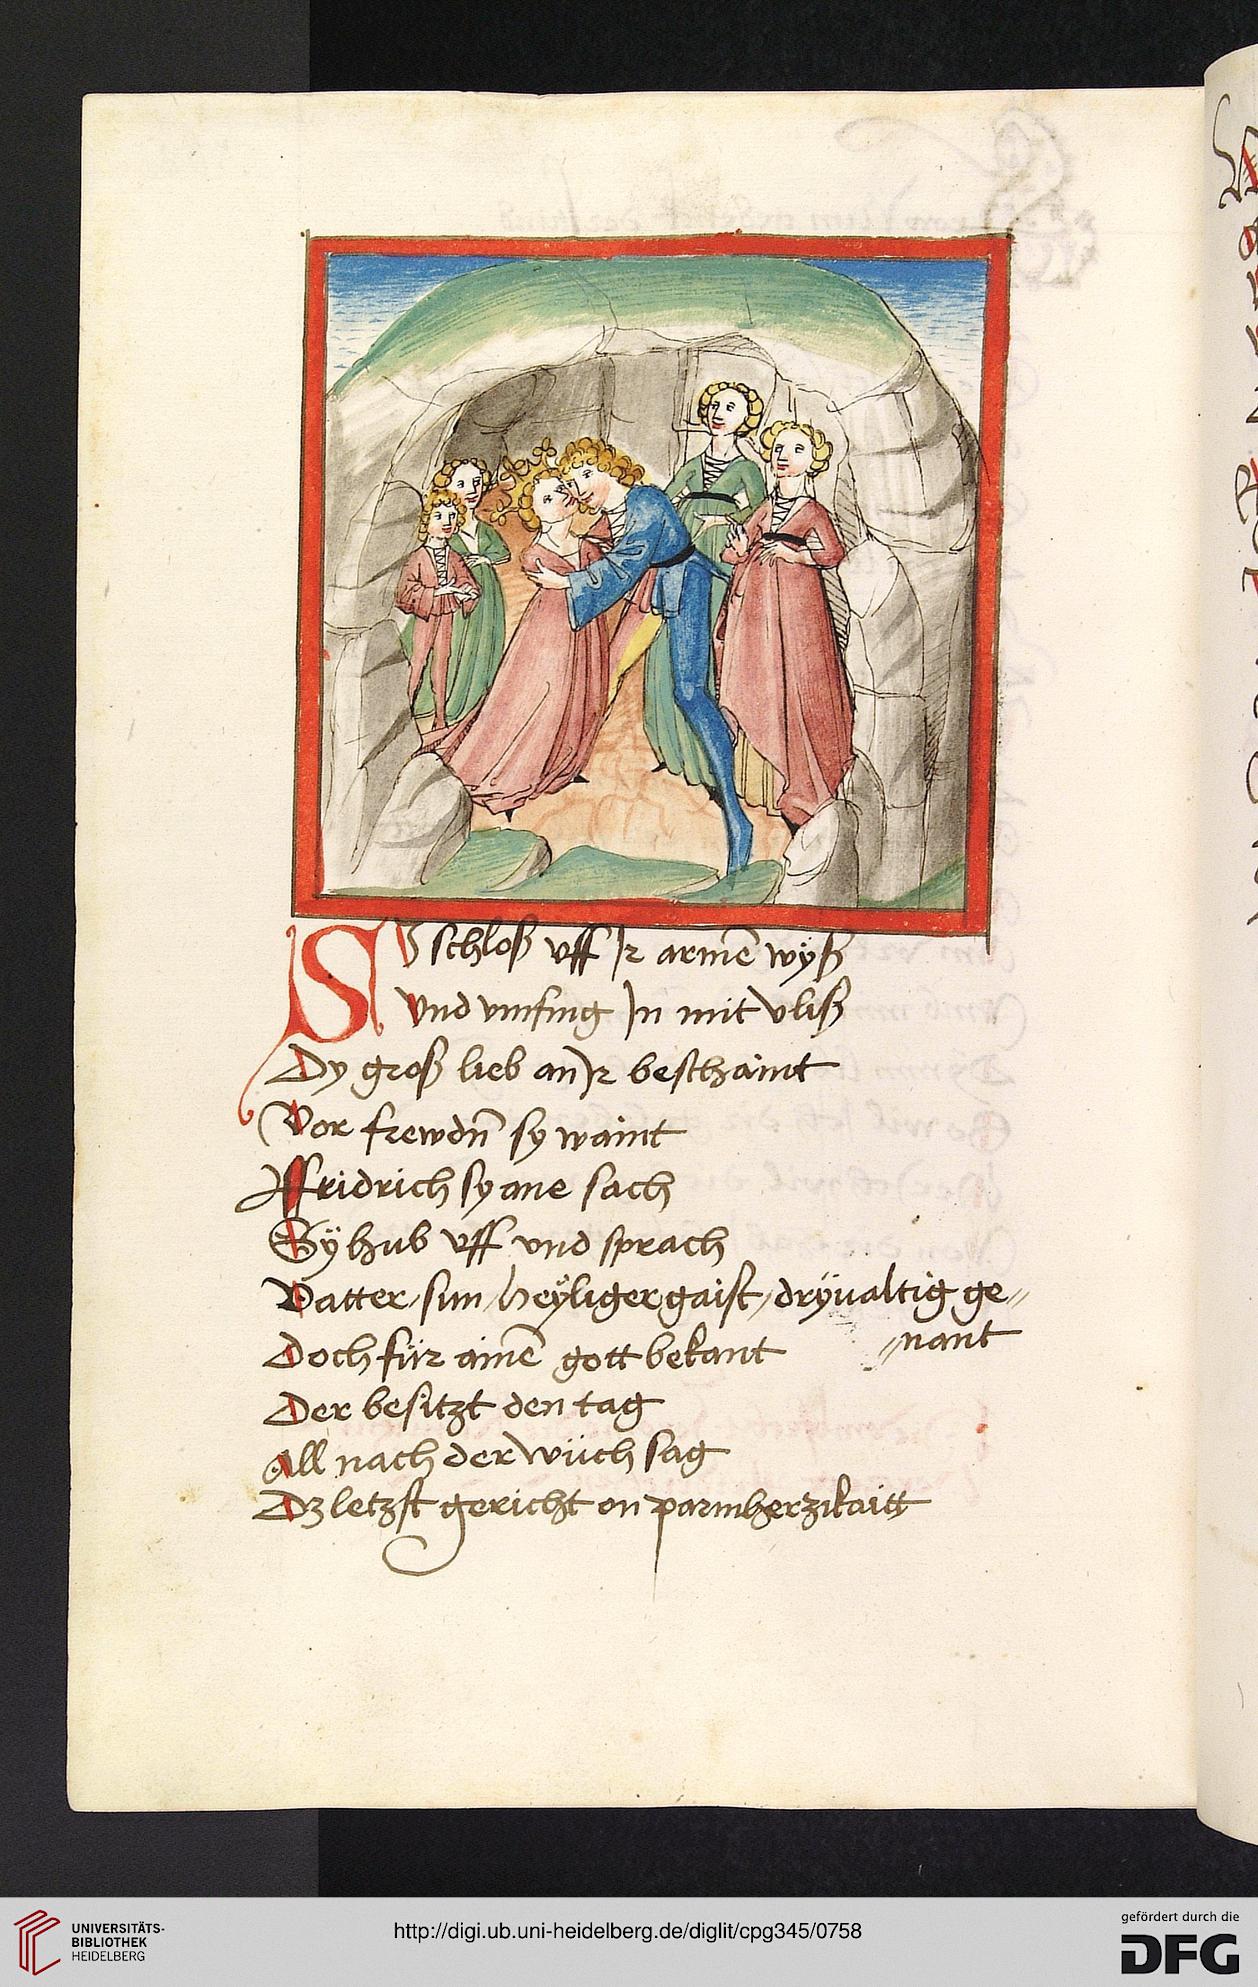 SY schloß vff Ir armē wÿß
Vnd vmfing In mit vliß
Dy groß lieb an Ir beschaint
Vor frewdn̄ sy waint
Fridrich sy ane sach
Sÿ hub vff vnd sprach
Vatter / sun / heÿliger gaist / drÿualtig ge〃
〃nant
Doch für ainē gott bekant
Der besitzt den tag
All nach der wüch sag
Dz letzst gericht on parmherzikaitt
UNIVERSITÄTS-
BIBLIOTHEK
HEIDELBERG
http://digi.ub.uni-heidelberg.de/diglit/cpg345/0758
gefördert durch die
DFG